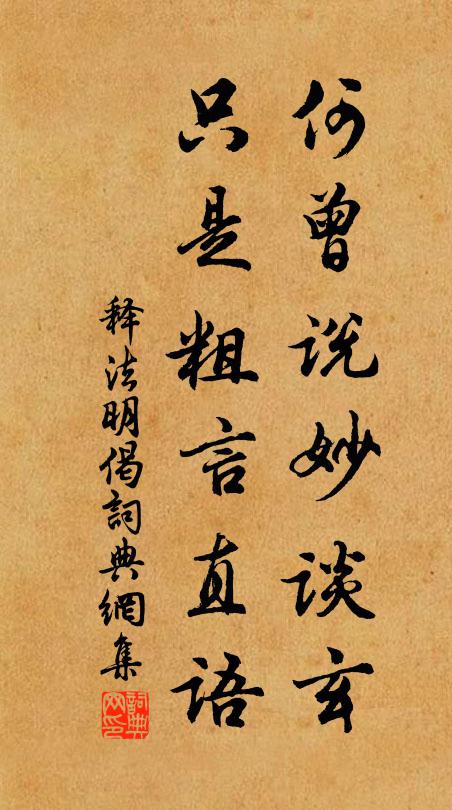 何曾说妙谈玄
只是粗言直语
释法明偈詞典網集
詞典
网印